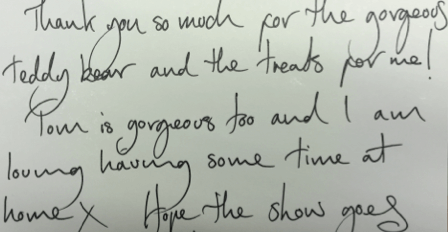 Thank you so much for the gorgeous
teddy bear and the treats for me!
Tom is gorgeous too and I am
loving having some time at
home X Hope the show goes